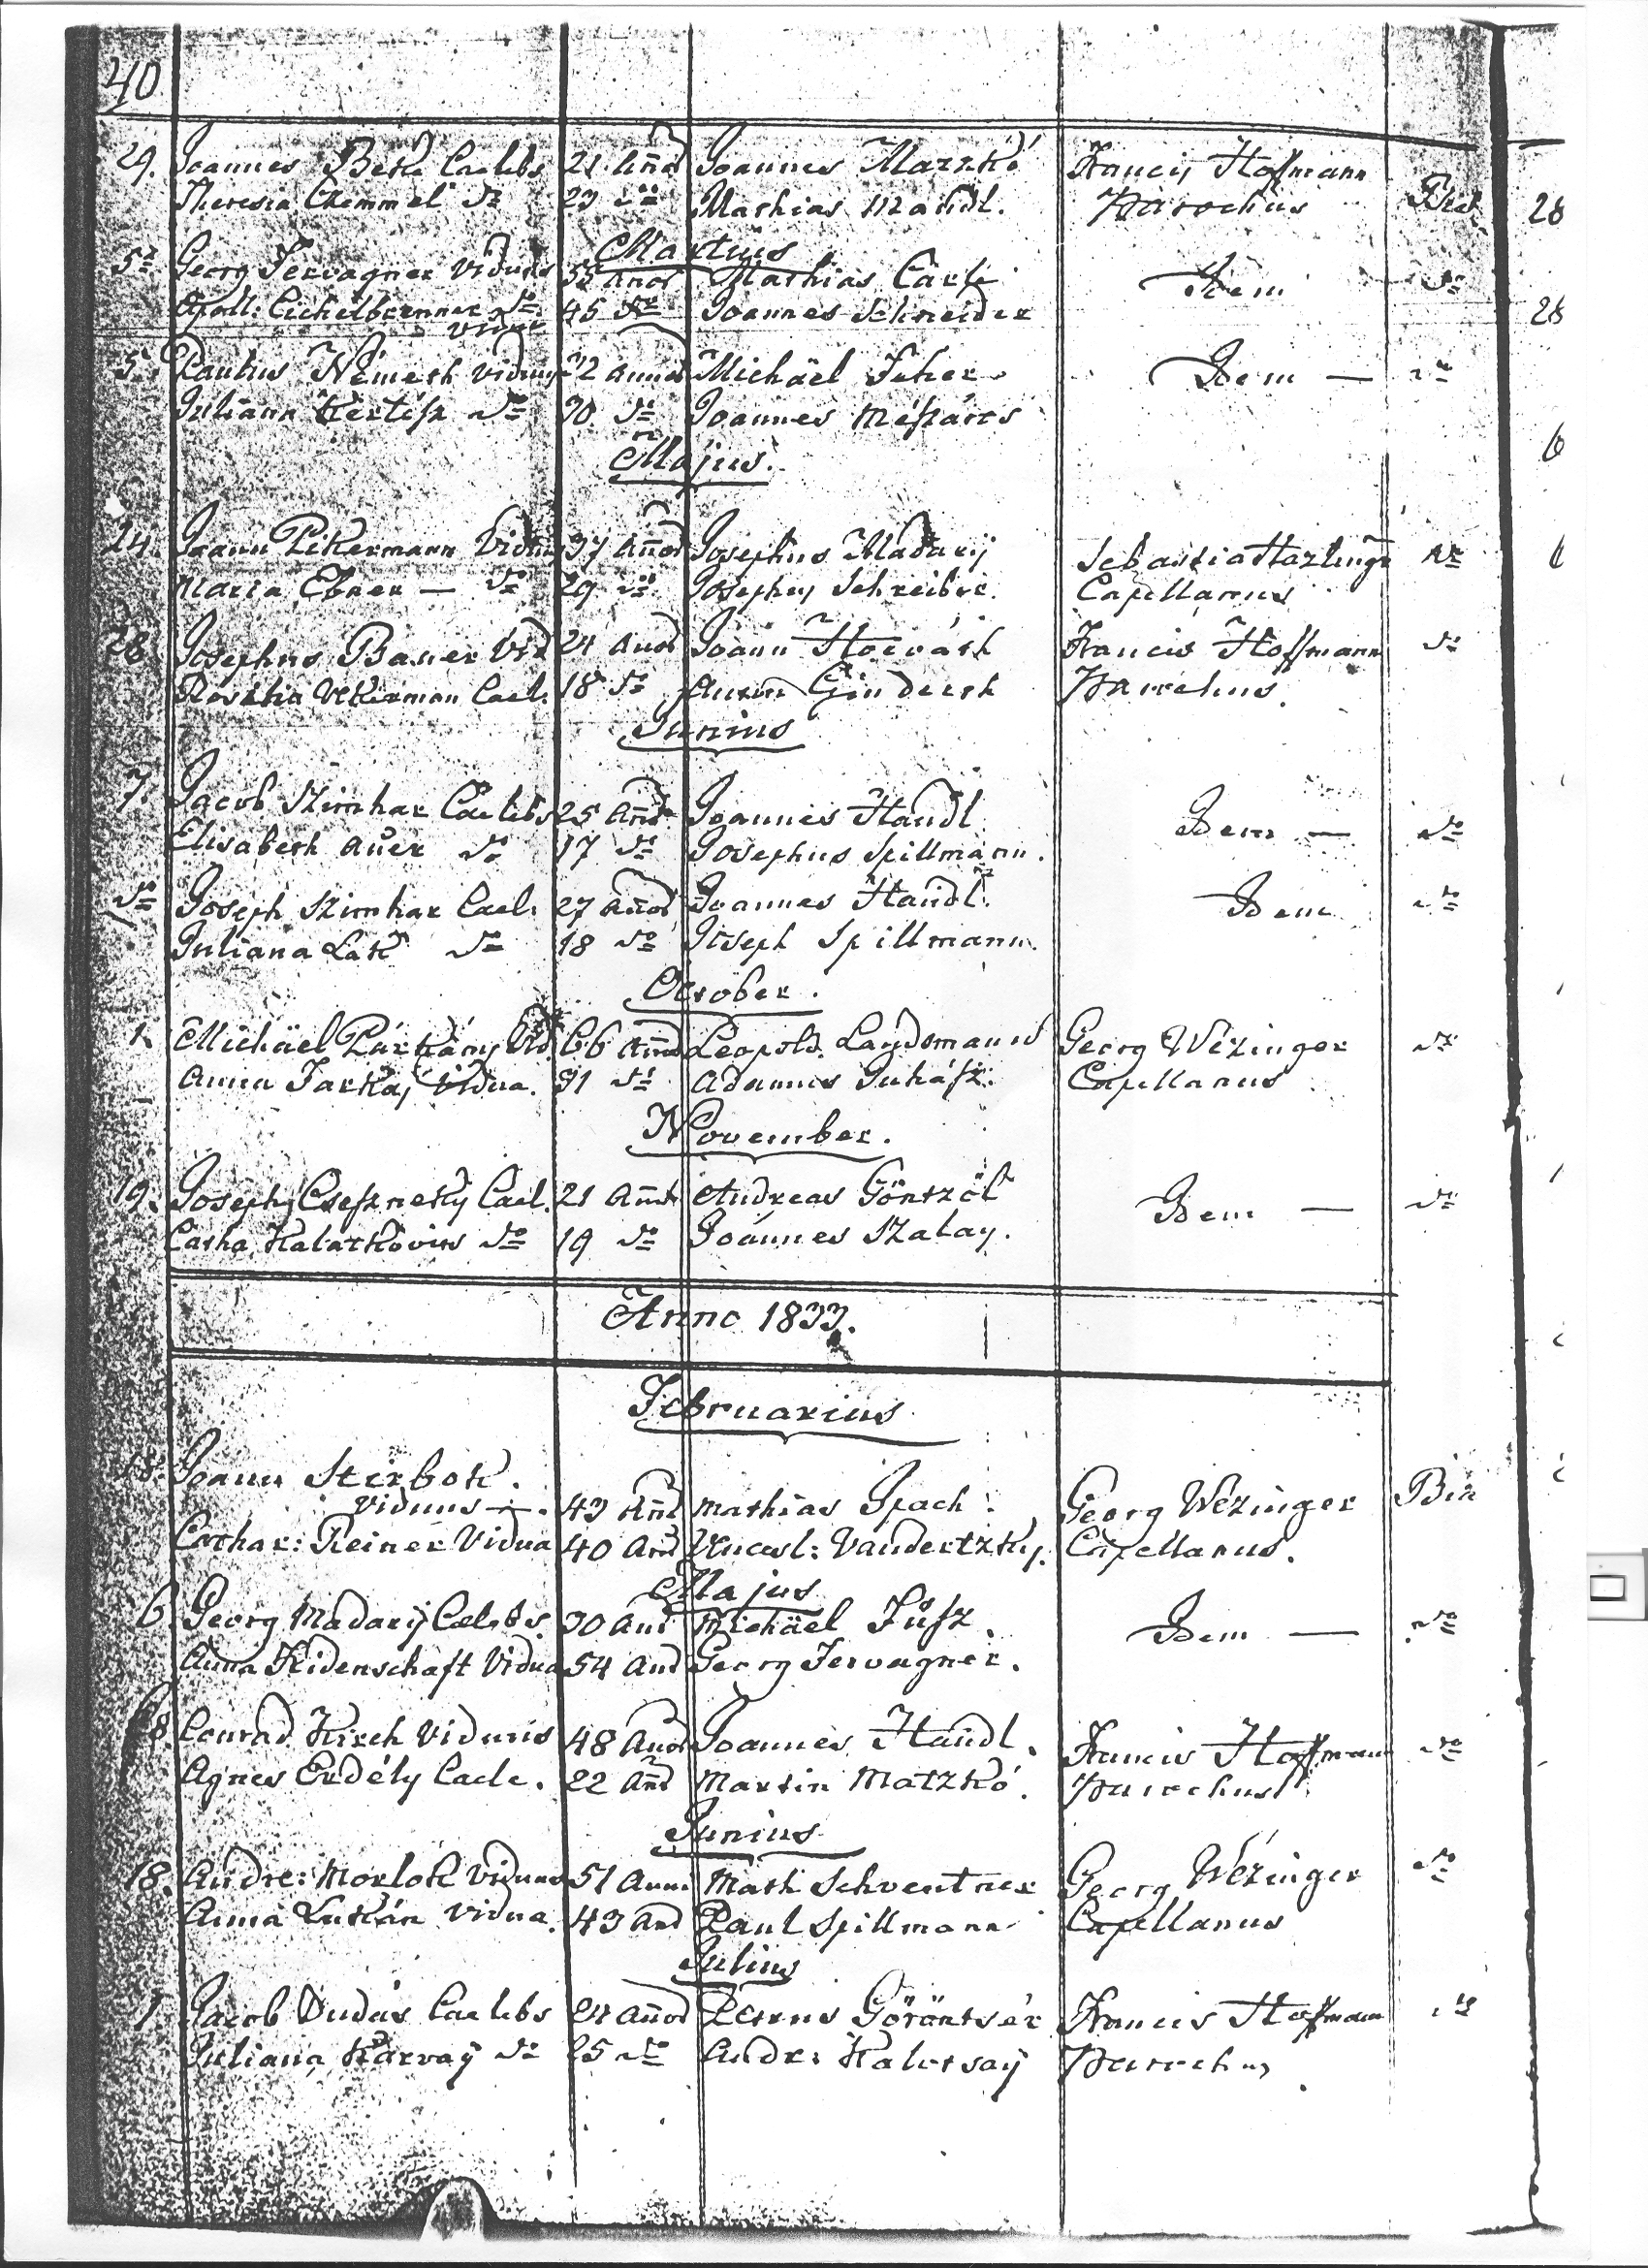 40
29. Joannes Beke Caelebs 21 Annor Joannes Matzkó Francis Hoffmann
Theresia Chemmel dto 23 dto Mathias Mandl. Parochus
Martius
5. Georg Fervagner Viduus 55 Annor Mathias Carli Idem dto
Apoll: Eichelbrenner dto 45 dto Joannes Schneider
Vidua
5. Paulus Németh Viduus 32 Annor Michäel Feher Idem — dto
Juliann Kertész dto 30 dto Joannes Mészáros
Május.
24. Joann Pikermann Viduus 37 Annor Josephus Madarij Capellanus dto
Maria Ebner — dto 29 dto Josephus Schreiber.
28 Josephus Bauer Vid 24 Annor Joann Horváth Francis Hoffmann dto
Rosalia Ukerman Cael. 18 dto Parochus.
Junius
7. Jacob Szimhar Caelebs 25 Annor Joannes Handl Idem — dto
Elisabeth Auer dto 17 dto Josephus Spillmann.
dto Joseph Szimhar Cael. 27 Annor Joannes Handl. Idem dto
Juliana Lak dto 18 dto Joseph Spillmann.
October.
1. Michäel Párkány Vid. 66 Annor Leopold Landsmann Georg Wézinger dto
Anna Farkaj Vidua. 51 dto Adamus Juhász. Capellanus
November.
19. Joseph Csesznekÿ Cael. 21 Annor Andreas Göntzöl Idem — dto
Catha Kalatkovits dto 19 dto Joannes Szalay.
Anno 1833.
Februarius
18. Joann Sterbok.
Viduus —. 43 Ann Mathias Spach. Georg Wézinger
Cathar: Reiner Vidua 40 Ann Vencesl: Vandertzky. Capellanus.
Majus
6 Georg Madarij Caelebs. 30 Ann Michäel Füsz. Idem — dto
Anna Kidenschaft Vidua 54 Ann Georg Fervagner.
8. Conrad Kirch Viduus 48 Annor Joannes Handl. Francis Hoffmann dto
Agnes Erdély Caele. 22 Ann Martin Matzkó. Parochus
Junius
18. Andre: Morlok Viduus 51 Anni Math Schventner Georg Wézinger dto
Anna Lukán Vidua. 43 Ann Paul Spillmann Capellanus
Julius
1. Jacob Dudás Caelebs 24 Annor Petrus Göröntsér Francis Hoffmann dto
Juliana Karvaÿ dto 25 dto Andr: Kalotsaÿ Parochus